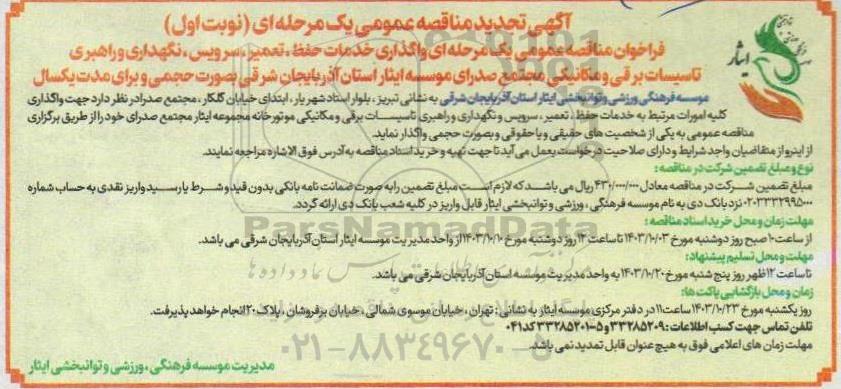 آگهی تجدید مناقصه عمومی یک مرحله ای (نوبت اول)
فراخوان مناقصه عمومی یک مرحله ای واگذاری خدمات حفظ ، تعمیر ، سرویس ، نگهداری و راهبری
تاسیسات برقی و مکانیکی مجتمع صدرای موسسه ایثار استان آذربایجان شرقی بصورت حجمی و برای مدت یکسال
ایثار
موسسه فرهنگی ورزشی و توانبخشی ایثار استان آذربایجان شرقی به نشانی تبریز ، بلوار استاد شهریار ، ابتدای خیابان گلکار ، مجتمع صدرا در نظر دارد جهت واگذاری
کلیه امورات مرتبط به خدمات حفظ ، تعمیر ، سرویس و نگهداری و راهبری تاسیسات برقی و مکانیکی موتورخانه مجموعه ایثار مجتمع صدرای خود را از طریق برگزاری
مناقصه عمومی به یکی از شخصیت های حقیقی و یا حقوقی و بصورت حجمی واگذار نماید.
از اینرو از متقاضیان واجد شرایط و دارای صلاحیت درخواست بعمل می آید تا جهت تهیه و خرید اسناد مناقصه به آدرس فوق الاشاره مراجعه نمایند.
نوع و مبلغ تضمین شرکت در مناقصه :
مبلغ تضمین شرکت در مناقصه معادل ۴۳۰/۰۰۰/۰۰۰ ریال می باشد که لازم است مبلغ تضمین را به صورت ضمانت نامه بانکی بدون قید و شرط یا رسید واریز نقدی به حساب شماره
۰۲۰۳۳۳۲۹۹۵۰۰۰ نزد بانک دی به نام موسسه فرهنگی ، ورزشی و توانبخشی ایثار قابل واریز در کلیه شعب بانک دی ارائه گردد.
مهلت زمان و محل خرید اسناد مناقصه :
از ساعت ۱۰ صبح روز دوشنبه مورخ ۱۴۰۳/۱۰/۰۳ تا ساعت ۱۲ روز دوشنبه مورخ ۱۴۰۳/۱۰/۱۰ از واحد مدیریت موسسه ایثار استان آذربایجان شرقی می باشد.
مهلت و محل تسلیم پیشنهاد:
تا ساعت ۱۲ ظهر روز پنج شنبه مورخ ۱۴۰۳/۱۰/۲۰ به واحد مدیریت موسسه استان آذربایجان شرقی می باشد.
زمان و محل بازگشایی پاکت ها:
روز یکشنبه مورخ ۱۴۰۳/۱۰/۲۳ ساعت ۱۱ در دفتر مرکزی موسسه ایثار به نشانی : تهران ، خیابان موسوی شمالی ، خیابان برفروشان ، پلاک ۲۰ انجام خواهد پذیرفت.
تلفن تماس جهت کسب اطلاعات : ۳۳۲۸۵۲۰۹ و ۵-۳۳۲۸۵۲۰۱ کد ۰۴۱
مهلت زمان های اعلامی فوق به هیچ عنوان قابل تمدید نمی باشد.
مدیریت موسسه فرهنگی ، ورزشی و توانبخشی ایثار
ParsNamadData
۰۲۱-۸۸۳۴۹۶۷۰-۵